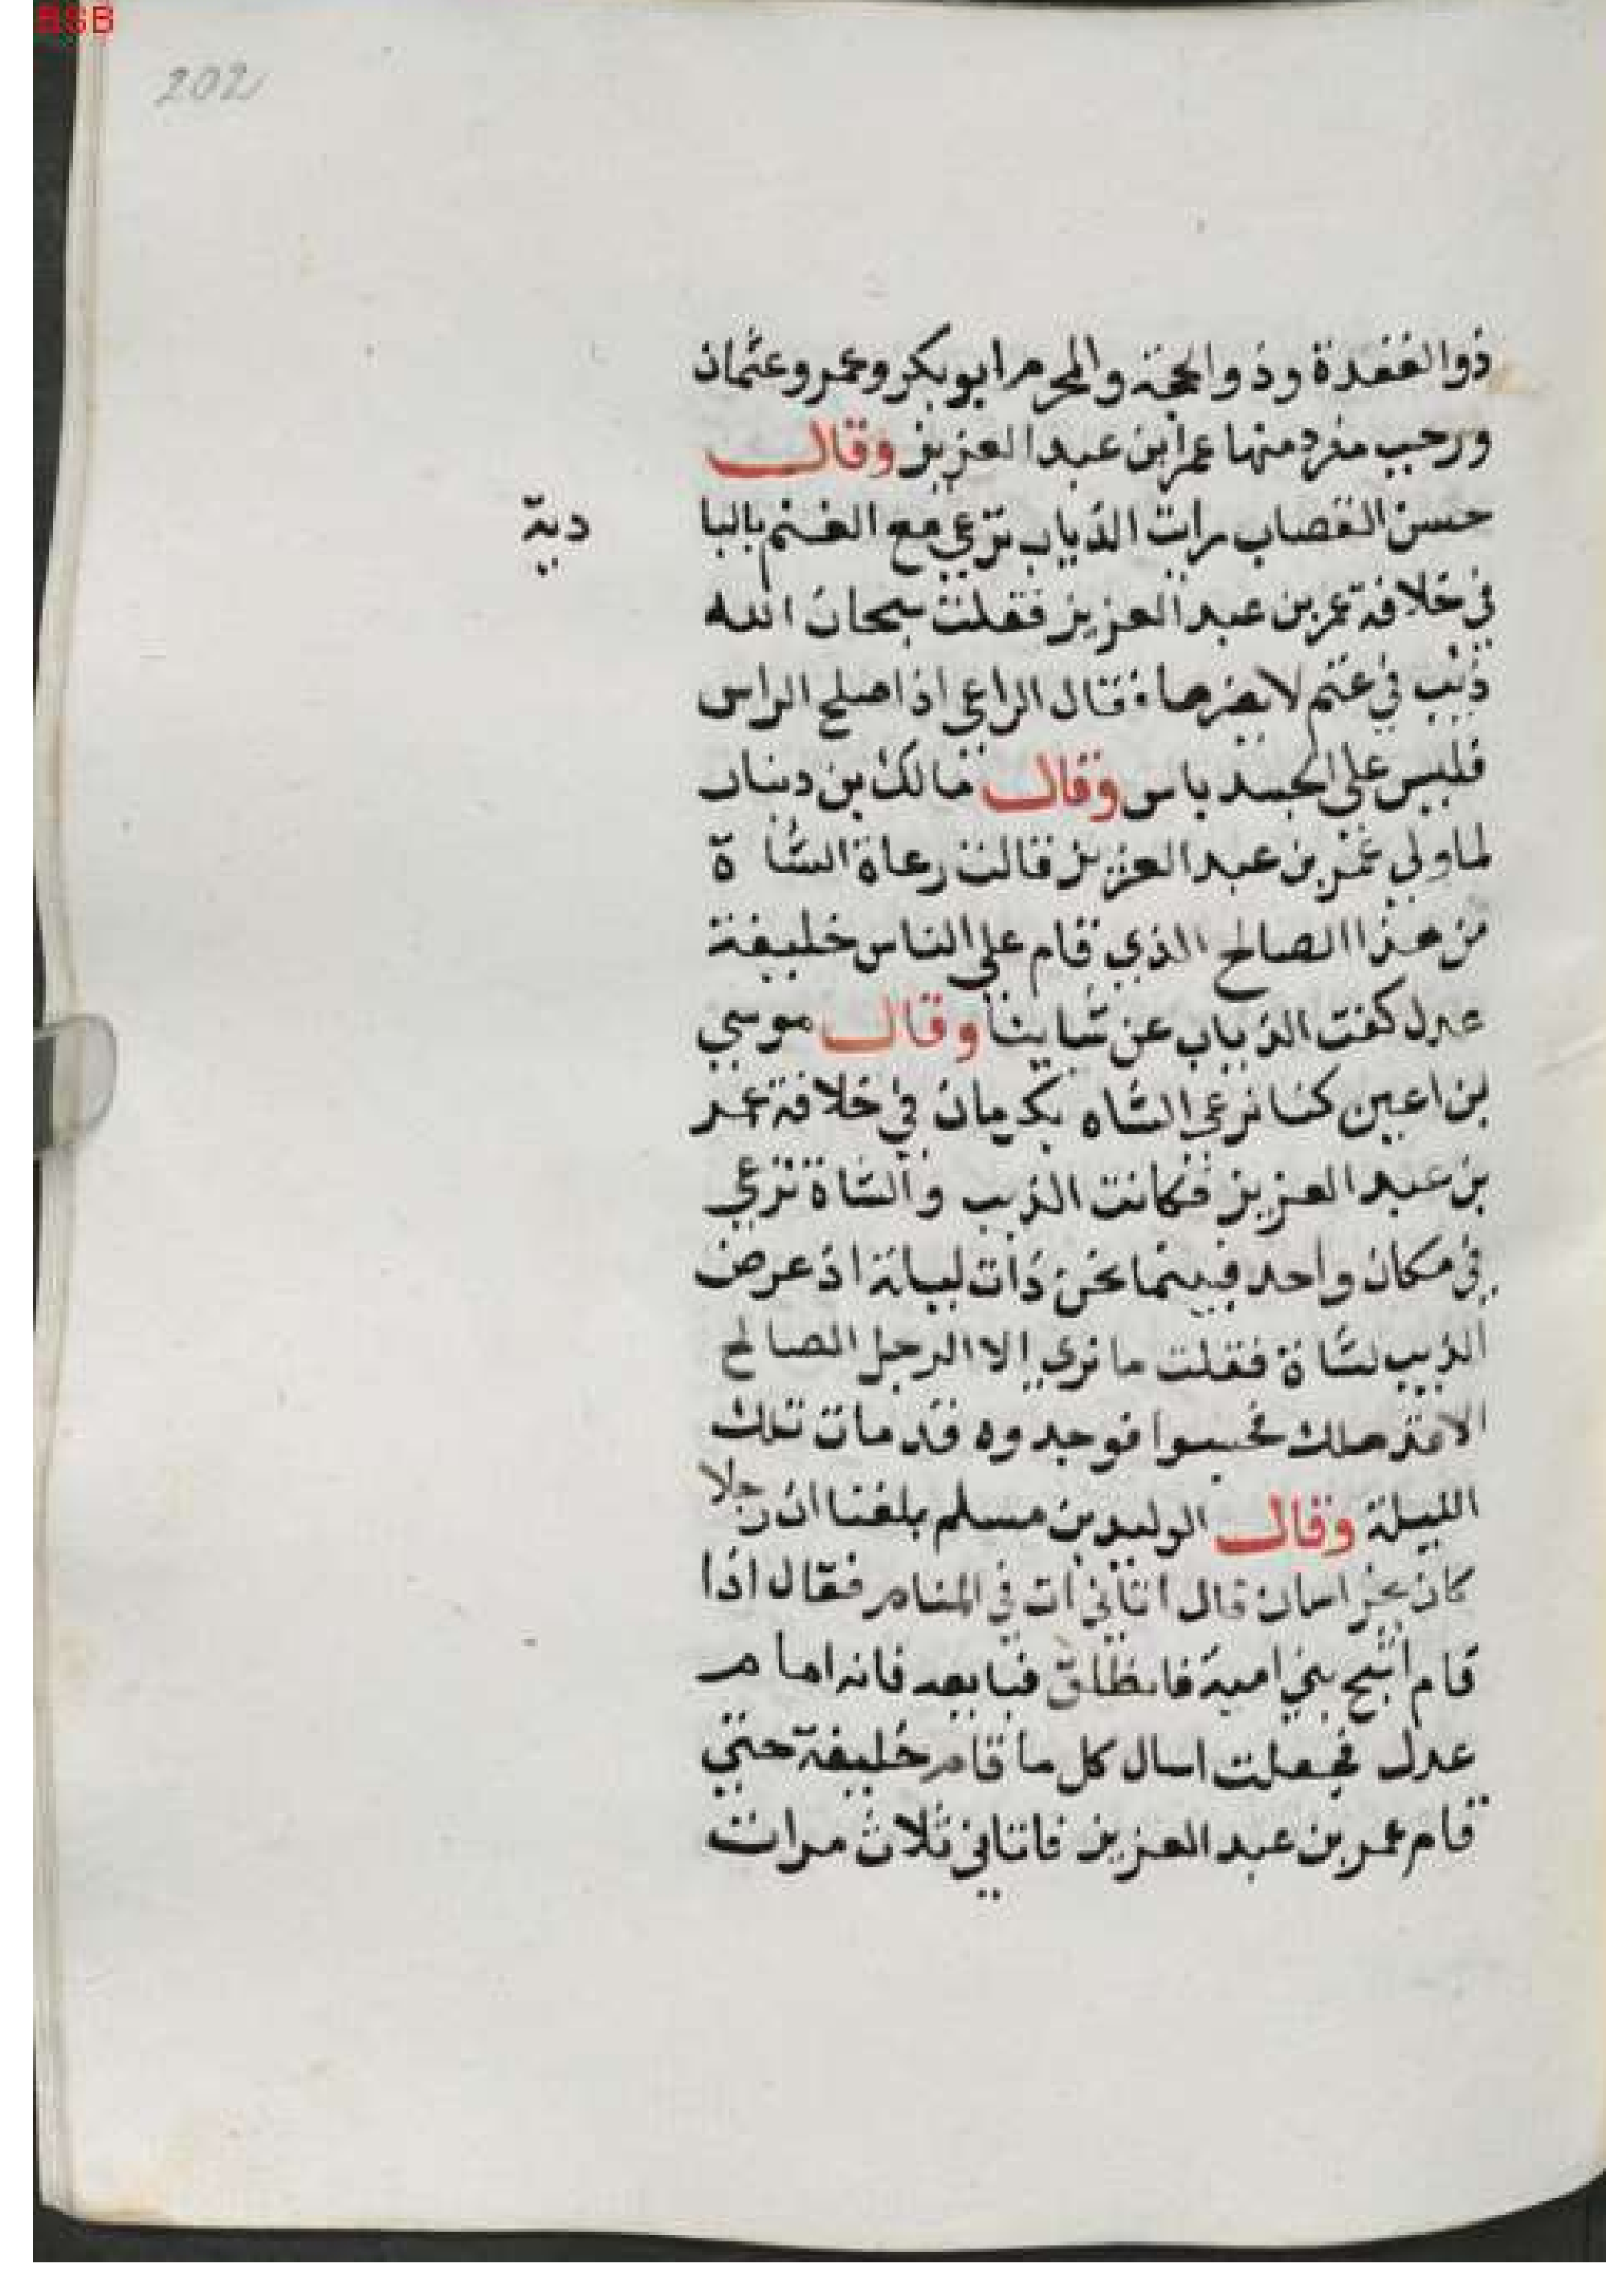 BSB
202
ذوا القعدة وذوا الحجة والمحرم ابو بكر وعمر وعثمان
ورجب منفرد منها عمر ابن عبد العزيز وقال
حسن القصاب رات الذياب ترعي مع الغنم بالبا
دية
في خلافة عمر بن عبد العزيز فقلت سبحان الله
ذيب في غنم لا يضرها فقال الراعي اذا صلح الراس
فليس على الجسد باس وقال مالك بن دينار
لما ولي عمر بن عبد العزيز قالت رعاة الشاة
من هذا الصالح الذي قام على الناس خليفة
عدل كفت الذياب عن شياينا وقال موسي
بن اعين كنا نرعي الشاه بكرمان في خلافة عمر
بن عبد العزيز فكانت الذيب والشاة ترعي
في مكان واحد فبينما نحن ذات ليلة اذ عرض
الذيب لشاة فقلت ما نري الا الرجل الصالح
الا قد هلك فحسبوا فوجدوه قد مات تلك
الليلة وقال الوليد بن مسلم بلغنا ان رجلا
كان بخراسان قال اتاني ات في المنام فقال اذا
قام اشج بني امية فانطلق فبايعه فانه امام
عدل فجعلت اسال كل ما قام خليفة حتي
قام عمر بن عبد العزيز فاتاني ثلاث مرات